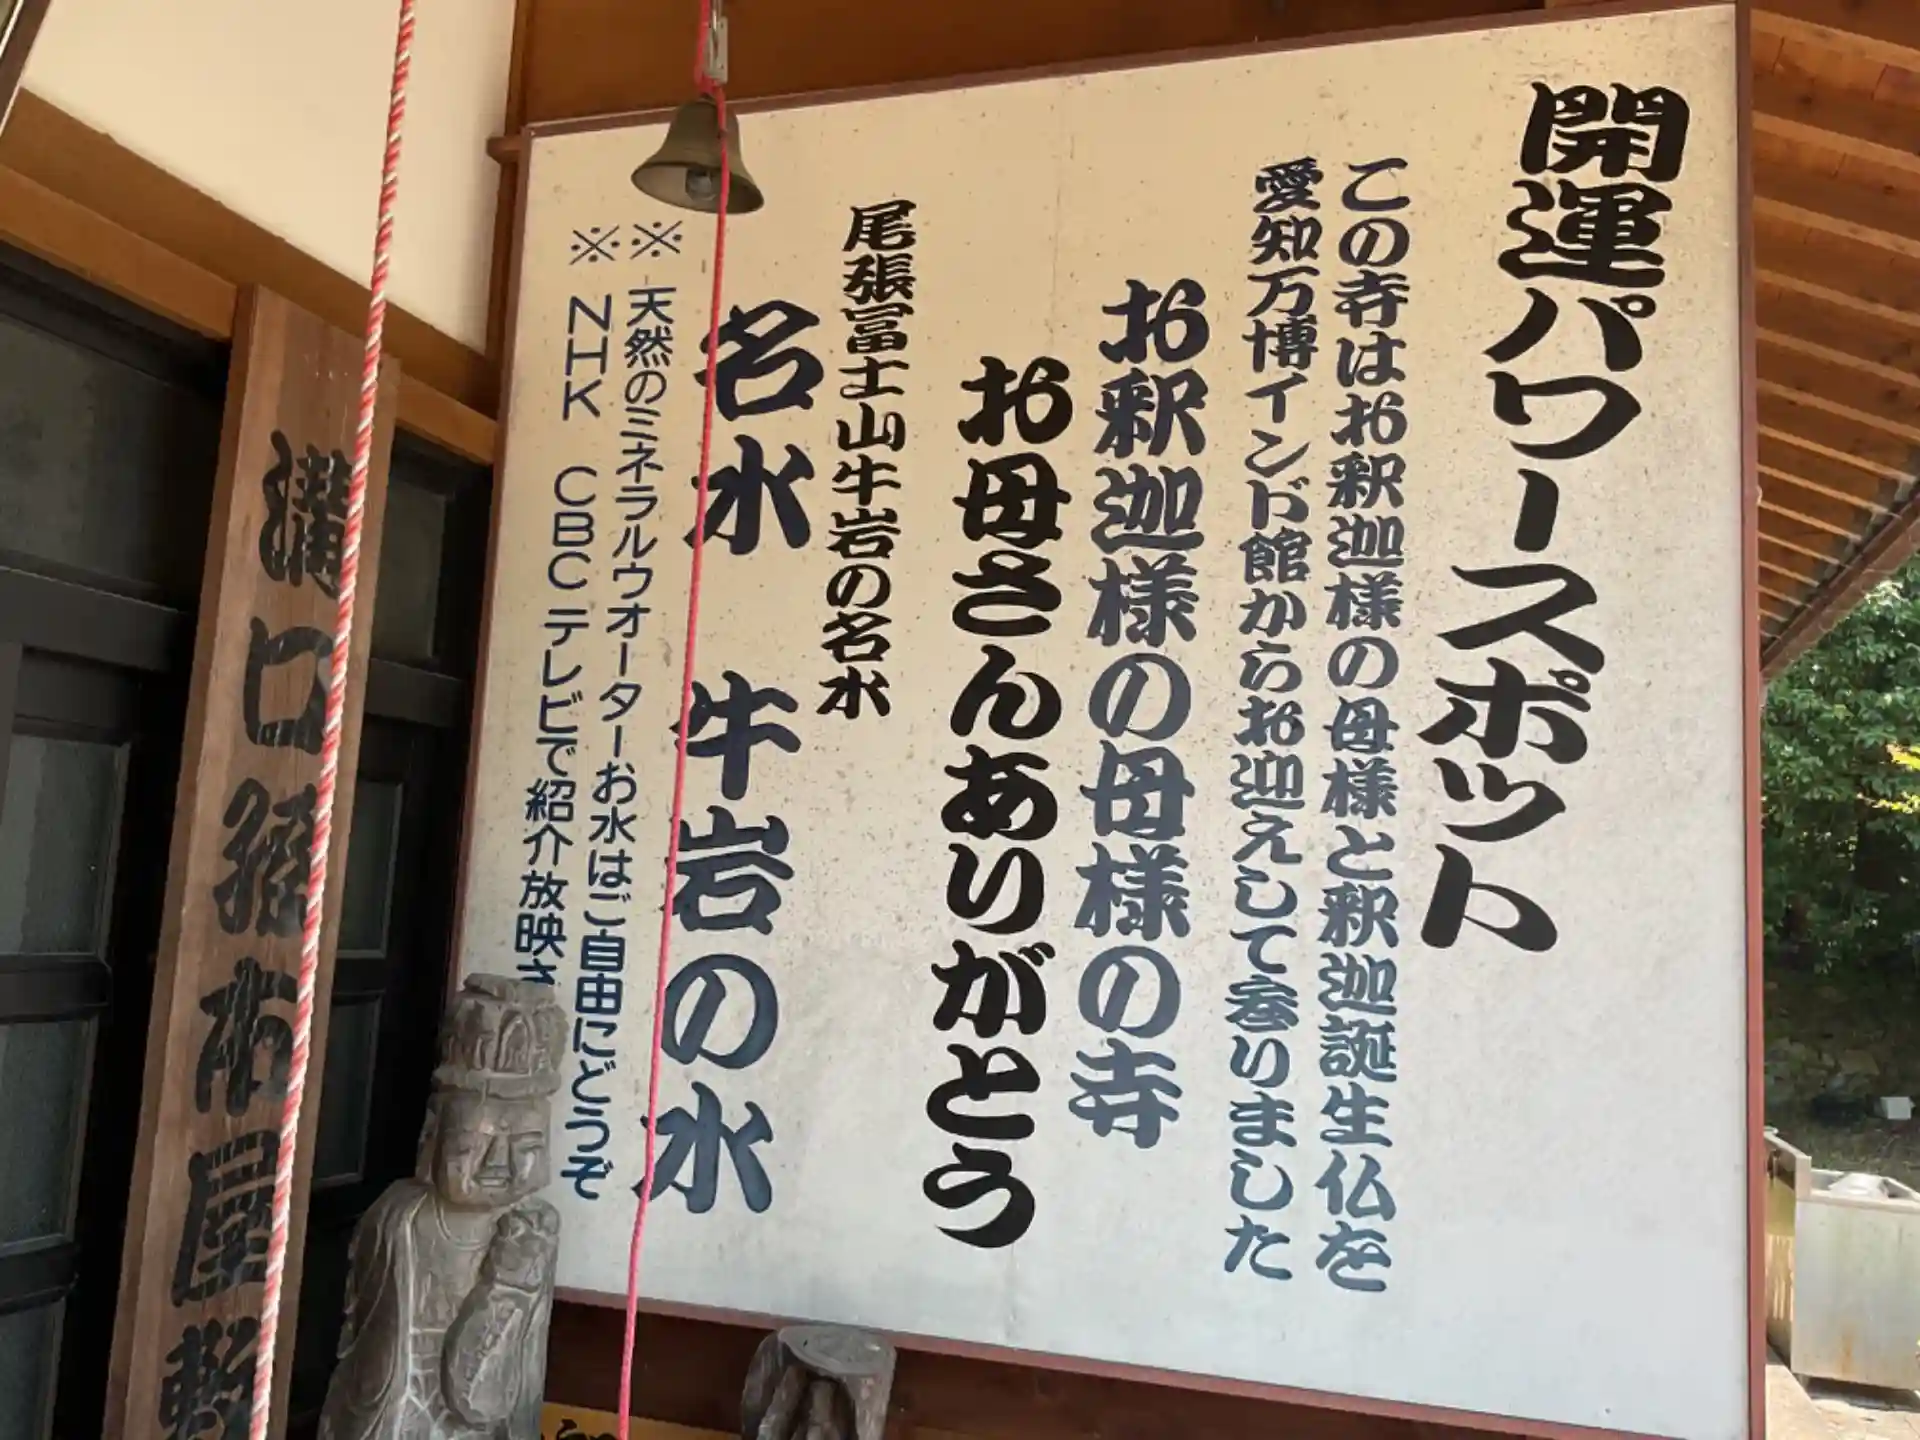 開運パワースポット
この寺はお釈迦様の母様と釈迦誕生仏を
愛知万博インド館からお迎えして参りました
お釈迦様の母様の寺
お母さんありがとう
尾張冨士山牛岩の名水
名水 牛岩の水
※ 天然のミネラルウオーターお水はご自由にどうぞ
※ NHK CBCテレビで紹介放映さ
溝口
市
屋敷